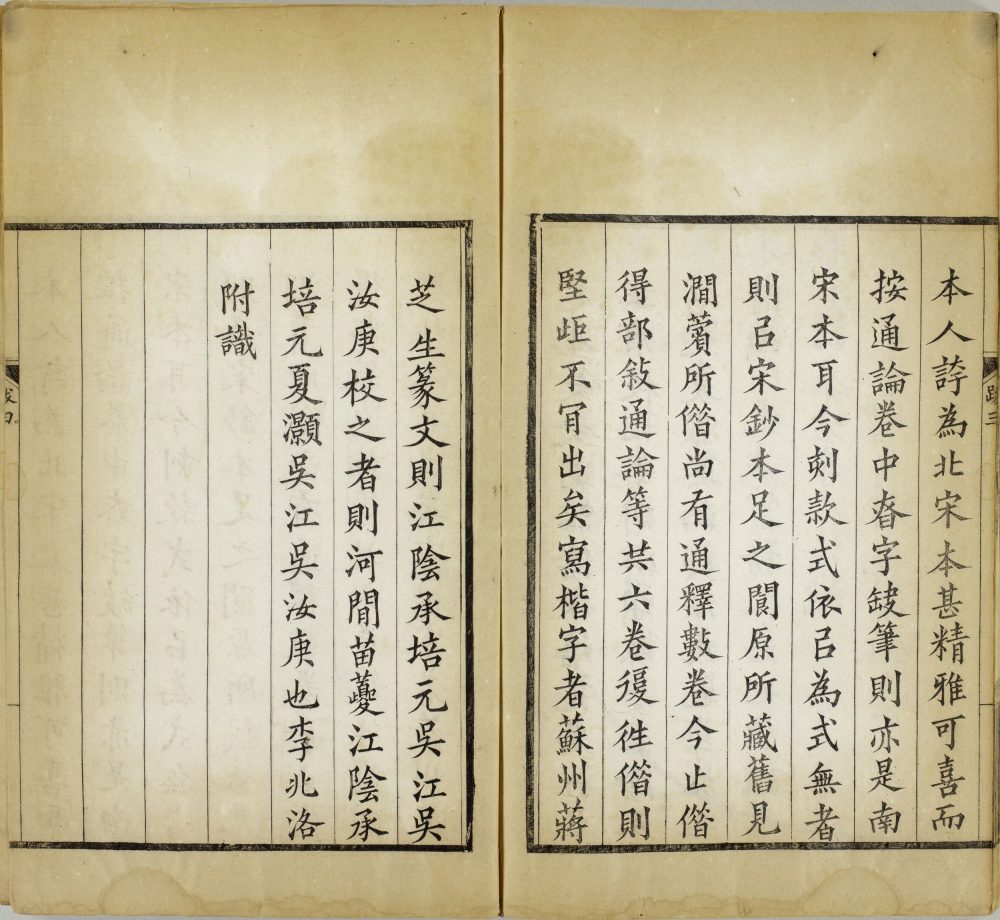 本人詩為北宋本甚精雅可喜而
按通論卷中昚字缺筆則亦是南
宋本耳今刻款式依㠯為式無者
則㠯宋鈔本足之閬原所藏舊見
澗薲所僭尚有通釋數卷今止僭
得部敘通論等共六卷復徃僭則
堅歫不肎出矣寫楷字者蘇州蔣
芝生篆文則江陰承培元吳江吳
汝庚校之者則河間苗夔江陰承
培元夏灝吳江吳汝庚也李兆洛
附識
跋三
跋四